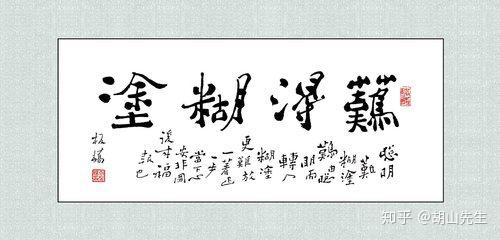 難得糊塗
聰明
難
糊塗
難由聰
明而
轉入
糊塗
更難放
一著退
一步
當下心
安非圖
後來福
報也
板橋
知乎 @胡山先生